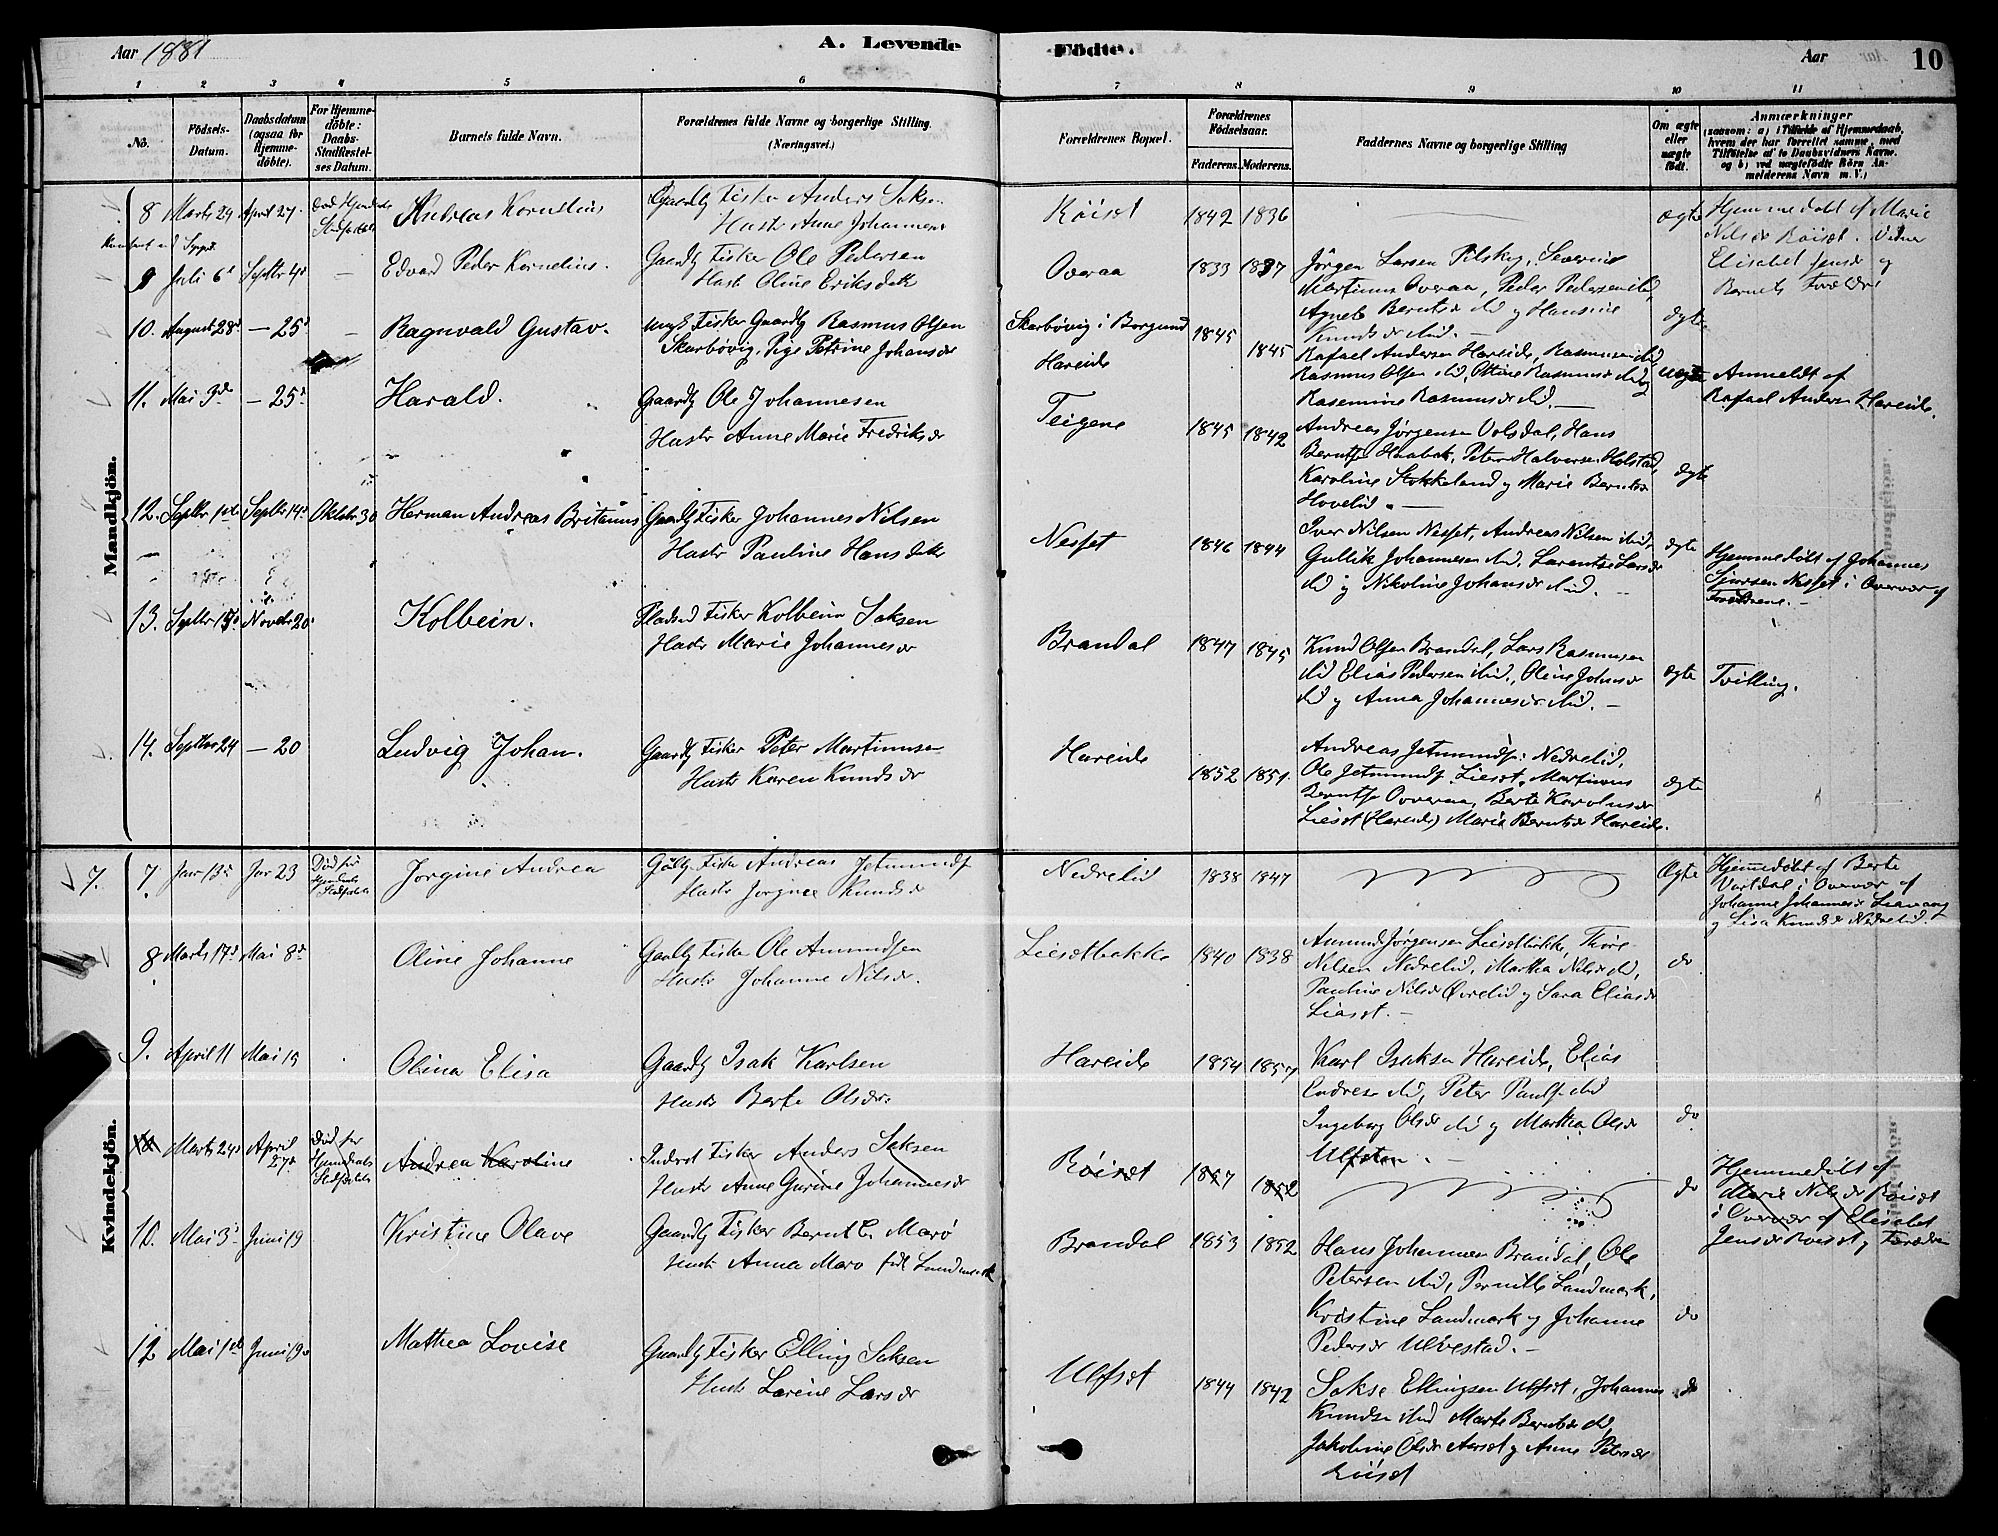 Aar 1881
A. Levende Födte.
Aar
10
1 2 3 4 5 6 7 8 9 10 11
No.
Födsels-Datum.
Daabsdatum (ogsaa for Hjemmedöbte).
For Hjemmedöbte: Daabs-Stadfæstelses Datum.
Barnets fulde Navn.
Forældrenes fulde Navne og borgerlige Stilling. (Næringsvei.)
Forældrenes Bopæl.
Forældrenes Födselsaar.
Faderens. Moderens.
Faddernes Navne og borgerlige Stilling
Om ægte eller uægte födt.
Anmærkninger
(saasom: a) i Tilfælde af Hjemmedaab, hvem der har forrettet samme, med Tilföielse af to Daabsvidners Navne. og b) ved uægtefödte Börn Anmelderens Navn m. V.)
Mandkjön.
8 Marts 29 April 27 Andreas Kornelius Gaardbr Fisker Anders Saks.
Hustr Anne Johannesdr
Röiset 1842 1836 ægte Hjemmedöbt af Marie
Nilsdr Röiset. Vidner
Elisabet Jensdr og
Barnets Forældre
9 Juli 6d Septbr 4d — Edvard Peder Kornelius. Gaardbr Fisker Ole Pedersen
Hustr Oline Eriksdatr
Overaa 1833 1837 Jörgen Larsen Pilskog, Severine
Martinus Overaa, Peder Pedersen ibid,
Agnete Berntsdr ibid og Hansine
Knudsdr ibid. — ægte
10. August 28d — 25d — Ragnvald Gustav. Ungk Fisker Gaardbr Rasmus Olsen
Skarbövig, Pige Petrine Johansdr
Skarbövig i Borgund
Hareide
1845 1845 Rafael Andersen Hareide, Rasmus ibid,
Rasmus Olsen ibid, Ottine Rasmusdr ibid og
Rasemine Rasmusdr ibid. — uægte Anmeldt af
Rafael Anders. Hareide.
11. Mai 3d — 25d Harald. Gaardbr Ole Johannesen
Hustr Anne Marie Fredriksdr
Teigene 1845 1842 Andreas Jörgensen Volsdal, Hans
Berntsen Haabak, Peter Halvorsen Holstad,
Karoline Stokkeland og Marie Berntsdr
Hovelid. — ægte
12. Septbr 1ste Septbr 14d Oktobr 30 Herman Andreas Britanus Gaardbr Fisker Johannes Nilsen
Hustr Pauline Hansdatr
Nesset 1846 1844 Iver Nilsen Nesset, Andreas Nilsen ibid,
Gullik Johannesen ibid, Larentse Larsdr
ibid og Nikoline Johansdr ibid. — ægte Hjemmedöbt af Johannes
Sjursen Nesset i Overvær af
Forældrene. —
13. Septbr 15d Novbr 20d Kolbein. Pladsmd Fisker Kolbein Saksen
Hustr Marie Johannesdr
Brandal 1847 1845 Knud Olsen Brandal, Lars Rasmussen
ibid Elias Pedersen ibid, Oline Johnsdr
ibid og Anna Johannesdr ibid. — ægte Tvilling.
14. Septbr 24 — 20 Ludvig Johan. Gaardbr Fisker Peter Martinusen
Hustr Karen Knudsdr
Hareide 1852 1851. Andreas Jetmunds. Nedrelid,
Ole Jetmunds. Lieset, Martinus
Berntsen Overaa, Berte Karolusdr
Lieset (Hareide) Marie Berntsdr Hareide. ægte
Kvindekjön.
7. 7. Jan 13d Jan 23 Död för Hjemdaabs Stadfæstelse Jorgine Andrea Gaardbr Fisker Andreas Jetmunds.
Hustr Jorgine Knudsdr
Nedrelid 1838 1847 Ægte Hjemmedöbt af Berte
Vartdal i Overvær af
Johanne Johannesdr
og Lisa Knudsdr Nedrelid.
8 Marts 17d Mai 8d Oline Johanne Gaardbr Fisker Ole Amundsen
Hustr Johanne Nilsdr.
Liesetbakke 1840 1838 Amund Jörgensen Liesetbakke, Thore
Nilsen Nedrelid, Martha Nilsdr ibid,
Pauline Nilsdr Övrelid og Sara Eliasdr
Liaset. — do
9. April 11 Mai 15 Olina Elisa Gaardbr Isak Karlsen
Hustr Berte Olsdr.
Hareide 1854 1857 Karl Isaksen Hareide, Elias
Endresen ibid, Peter Pauls. ibid
Ingeborg Olsdr ibid og Martha Olsdr
Ulfsten. — do
Marts 24d April 27d Död for Hjemdaabs Stadfæstelse Andrea Karoline Inderst Fisker Anders Saksen
Hustr Anne Gurine Johannesdr
Röiset 1857 1852 do Hjemmedöbt af
Marie Nilsdr Röiset
i Overvær af Elisabet
Jensdr Röiset og Forældre
10. Mai 3d Juni 19 Kristine Olave Gaardbr Fisker Bernt E. Marö
Hustr Anna Marö född Landmark
Brandal 1853 1852 Hans Johannesen Brandal, Ole
Petersen ibid, Pernille Landmark,
Kristine Landmark og Johanne
Pedersdr Ulvestad. — do
12 Mai 1ste Juni 19d Mathea Lovise Gaardbr Fisker Elling Saksen
Hustr Larine Larsdr
Ulfset 1844 1842 Sakse Ellingsen Ulfset, Johannes
Knudsen ibid Marte Berntsdr ibid,
Jakobine Olsdr Aarset og Anne Petersdr
Röiset do